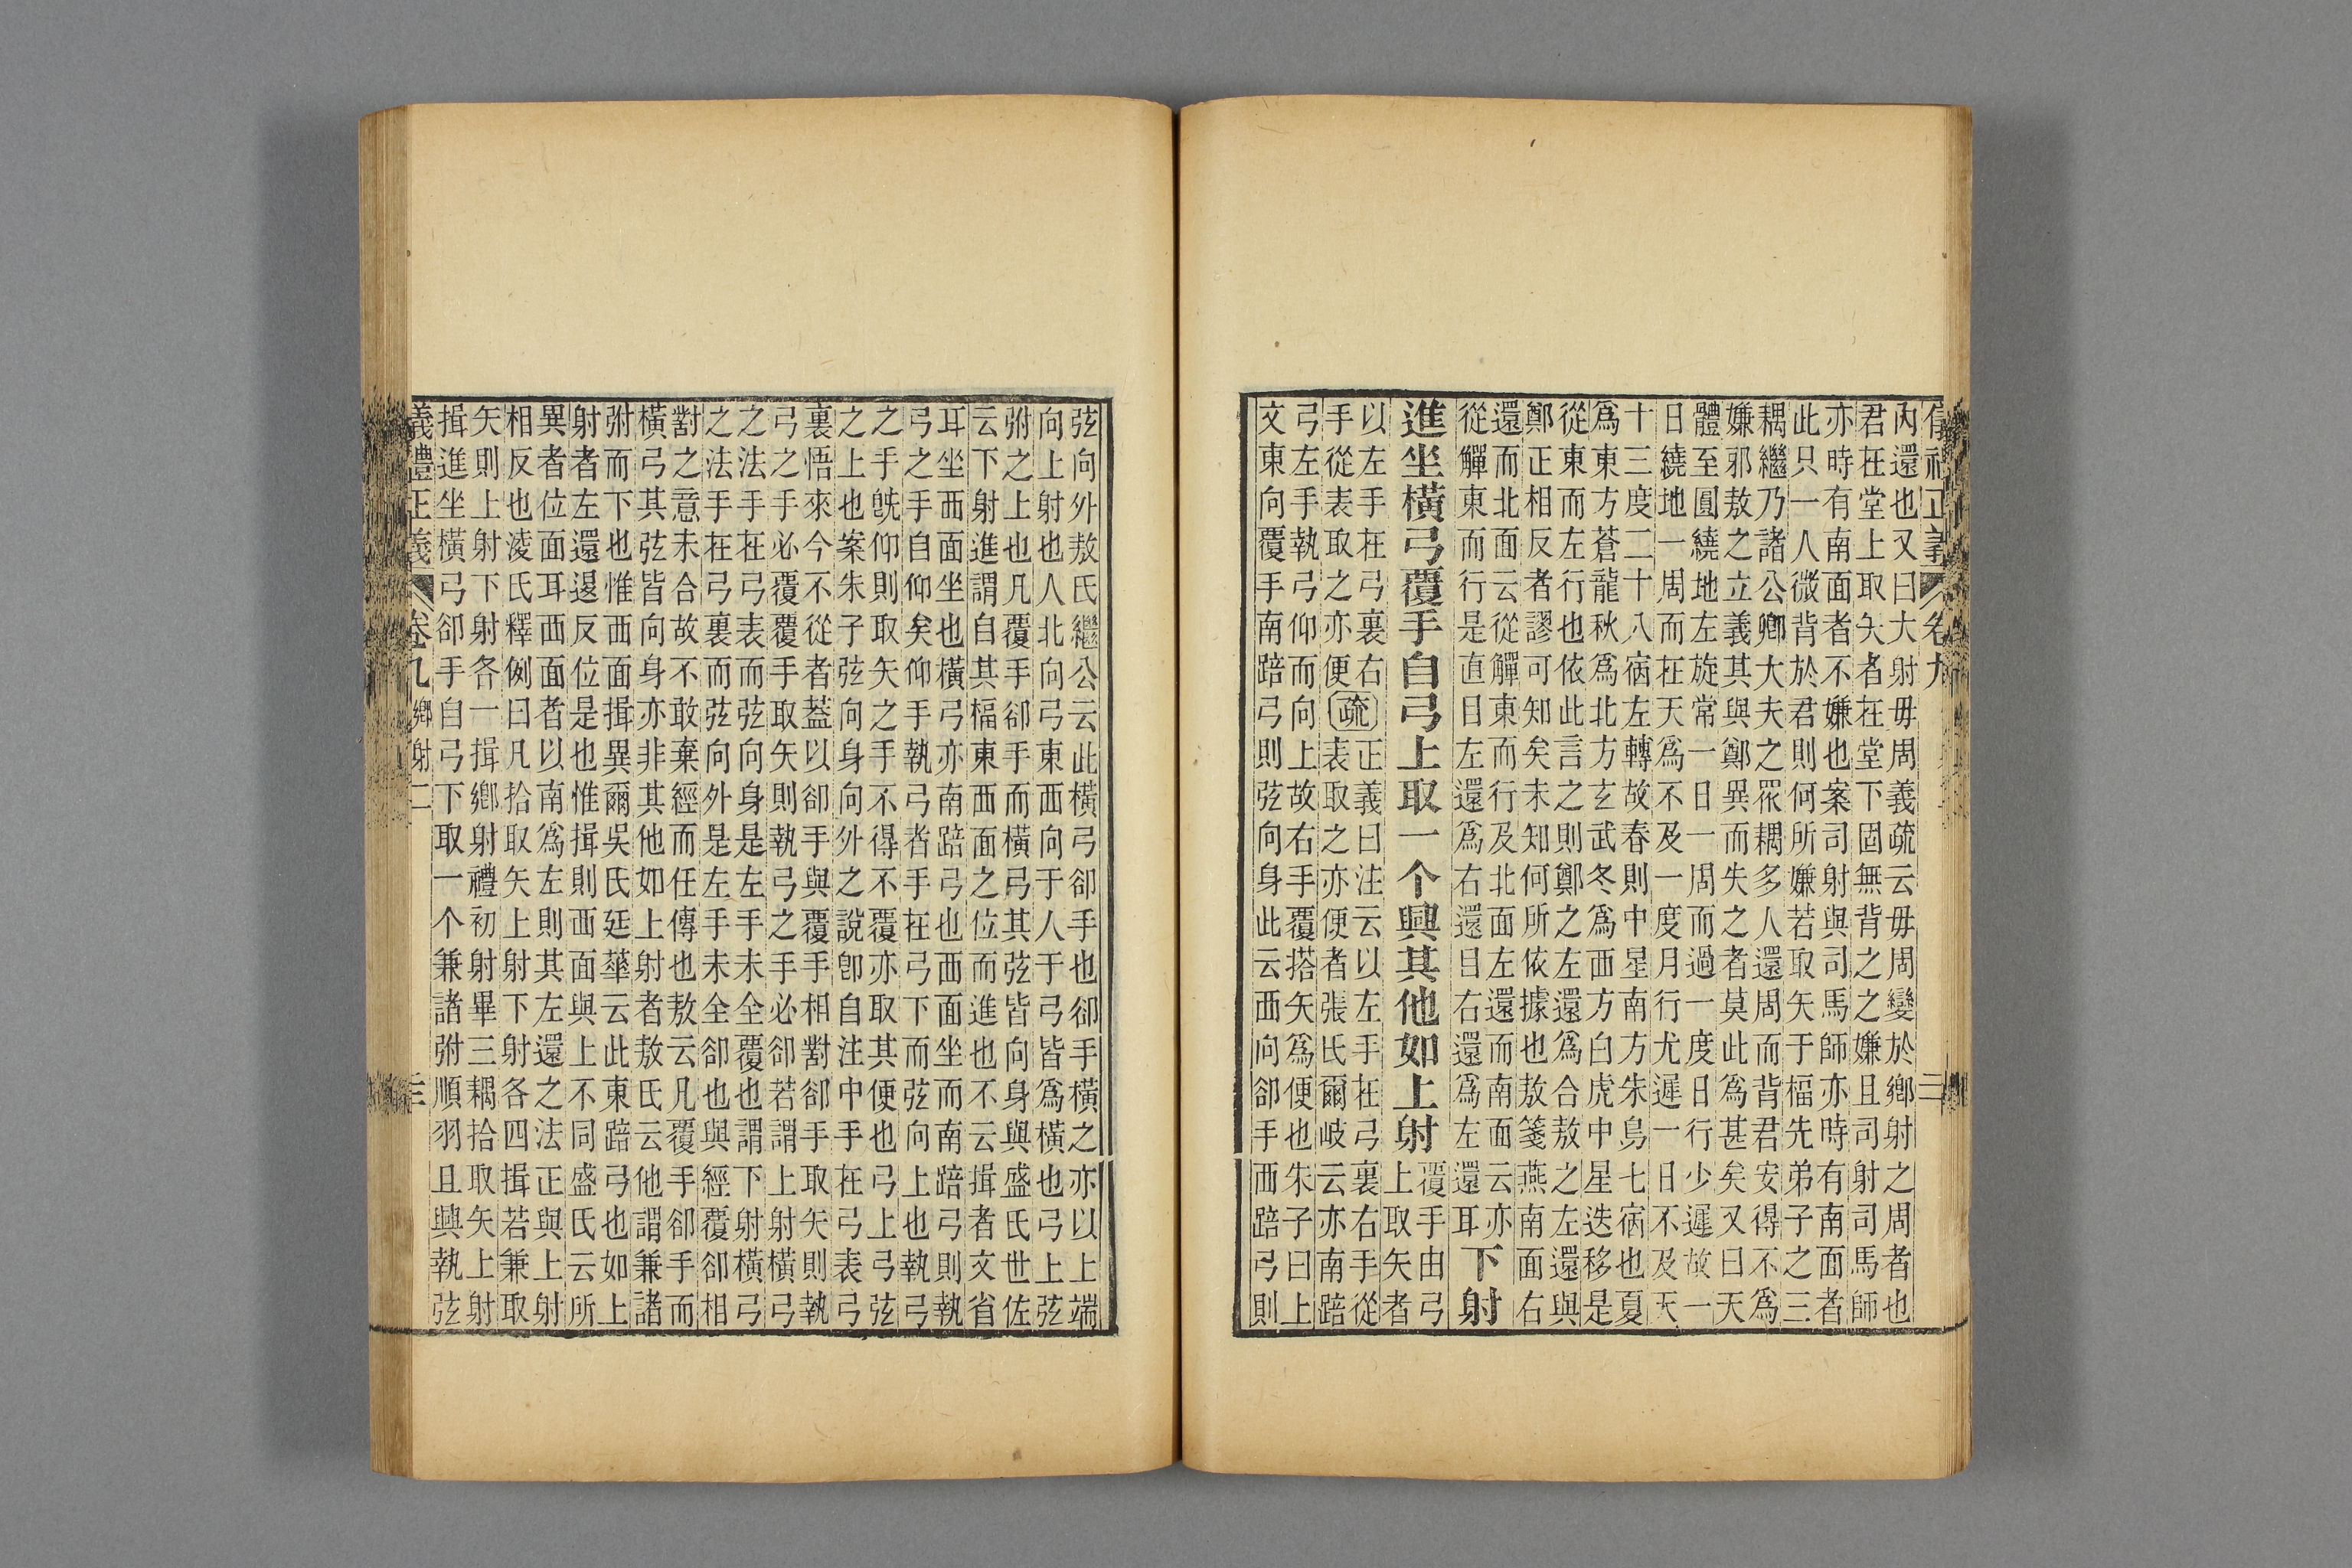 正義 卷九 三
內還也又曰大射毋周義疏云毋周變於鄉射之周者也
君在堂上取矢者在堂下固無背之之嫌且司射司馬師
亦時有南面者不嫌也案司射與司馬師亦時有南面者
此只一人微背於君則何所嫌若取矢于楅先弟子之三
耦繼乃諸公卿大夫之眾耦多人還周而背君安得不爲
嫌邪敖之立義其與鄭異而失之者莫此爲甚矣又曰天
體至圓繞地左旋常一日一周而過一度日行少遲故一
日繞地一周而在天爲不及一度月行尤遲一日不及天
十三度二十八宿左轉故春則中星南方朱鳥七宿也夏
爲東方蒼龍秋爲北方玄武冬爲西方白虎中星迭移是
從東而左行也依此言之則鄭之左還爲合敖之左還與
鄭正相反者謬可知矣未知何所依據也敖箋燕南面右
還而北面云從觶東而行及北面左還而南面云亦
從觶東而行是直目左還爲右還目右還爲左還耳
下射
進坐橫弓覆手自弓上取一个興其他如上射
覆手由弓
上取矢者
以左手在弓裏右
手從表取之亦便
疏
正義曰注云以左手在弓裏右手從
表取之亦便者張氏爾岐云亦南踣
弓左手執弓仰而向上故右手覆搭矢爲便也朱子曰上
文東向覆手南踣弓則弦向身此云西向卻手西踣弓則
弦向外敖氏繼公云此橫弓卻手也卻手橫之亦以上端
向上射也人北向弓東西向于人于弓皆爲橫也弓上弦
弣之上也凡覆手卻手而橫弓其弦皆向身與盛氏世佐
云下射進謂自其楅東西面之位而進也不云揖者文省
耳坐西面坐也橫弓亦南踣弓也西面坐而南踣弓則執
弓之手自仰矣仰手執弓者手在弓下而弦向上也執弓
之手旣仰則取矢之手不得不覆亦取其便也弓上弓弦
之上也案朱子弦向身向外之說卽自注中手在弓表弓
裏悟來今不從者蓋以卻手與覆手相對卻手取矢則執
弓之手必覆覆手取矢則執弓之手必卻若謂上射橫弓
之法手在弓表而弦向身是左手未全覆也謂下射橫弓
之法手在弓裏而弦向外是左手未全卻也與經覆卻相
對之意未合故不敢棄經而任傳也敖云凡覆手卻手而
橫弓其弦皆向身亦非其他如上射者敖氏云他謂兼諸
弣而下也惟西面揖異爾吳氏廷華云此東踣弓也如上
射者左還退反位是也惟揖則西面與上不同盛氏云所
異者位面耳西面者以南爲左則其左還之法正與上射
相反也淩氏釋例曰凡拾取矢上射下射各四揖若兼取
矢則上射下射各一揖鄉射禮初射畢三耦拾取矢上射
揖進坐橫弓卻手自弓下取一个兼諸弣順羽且興執弦
義禮正義 卷九 鄉射二 三